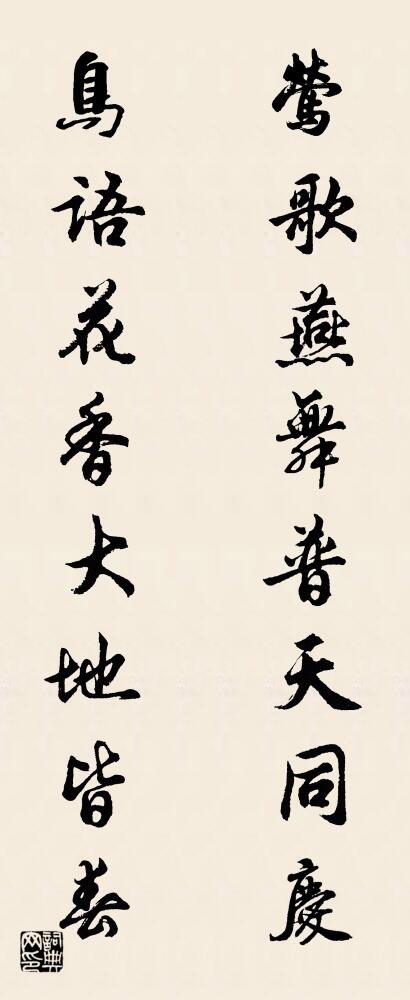 鶯歌燕舞普天同慶
鳥語花香大地皆春
詞典网印